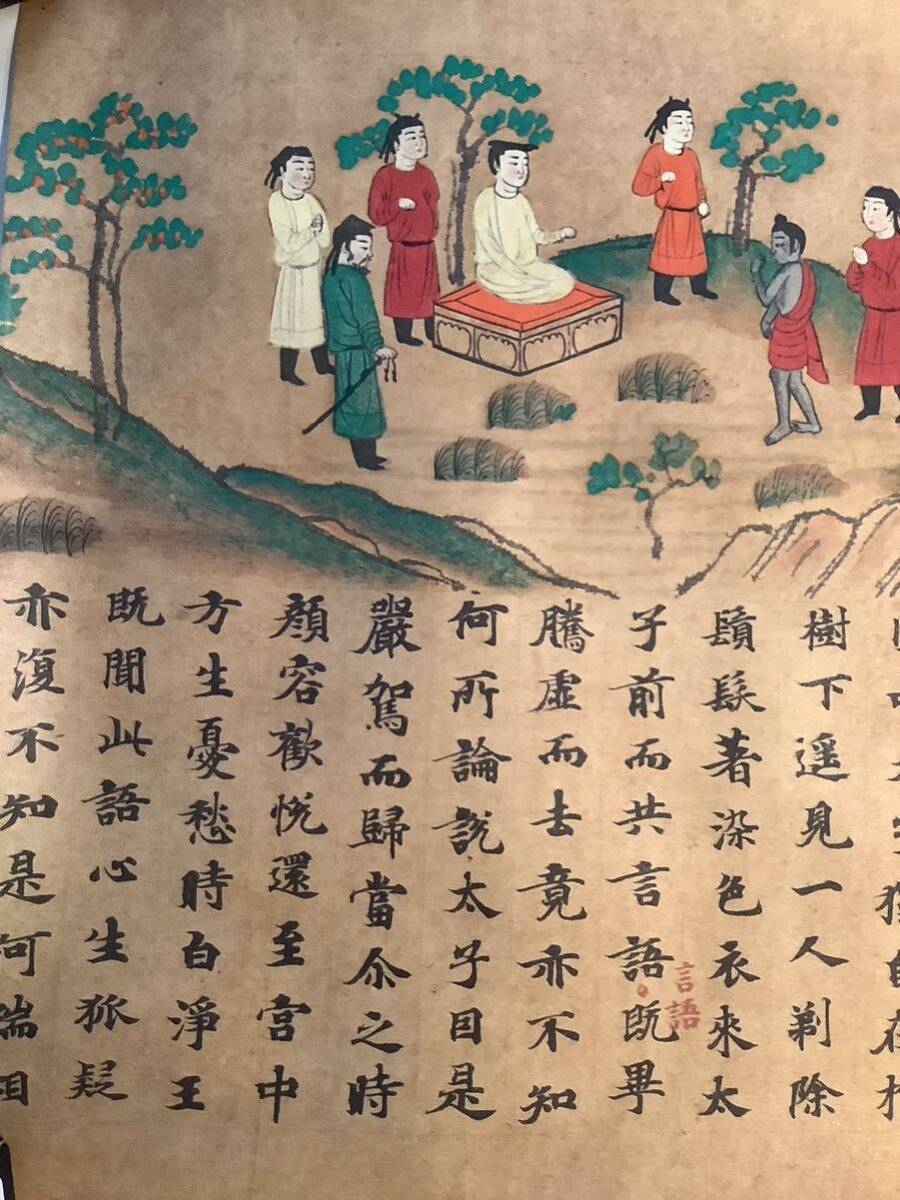 樹下遥見一人剃除
鬚髮著染色衣來太
子前而共言語既畢
言語
騰虛而去竟亦不知
何所論說太子因是
嚴駕而歸當尒之時
顏容歡悅還至宮中
方生憂愁時白淨王
既聞此語心生狐疑
亦復不知是何